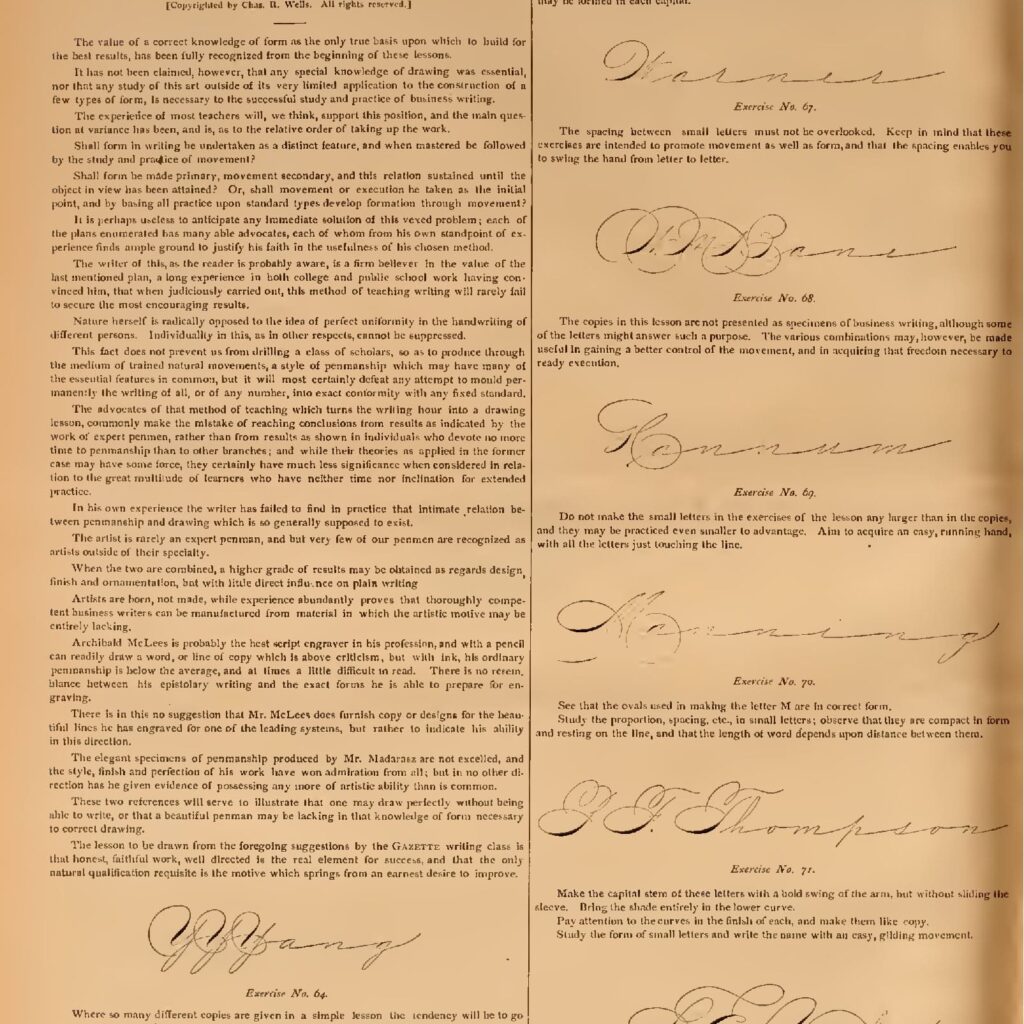 [Copyrighted by Chas. R. Wells. All rights reserved.]
The value of a correct knowledge of form as the only true basis upon which to build for
the best results, has been fully recognized from the beginning of these lessons.
It has not been claimed, however, that any special knowledge of drawing was essential,
nor that any study of this art outside of its very limited application to the construction of a
few types of form, is necessary to the successful study and practice of business writing.
The experience of most teachers will, we think, support this position, and the main ques-
tion at variance has been, and is, as to the relative order of taking up the work.
Shall form in writing be undertaken as a distinct feature, and when mastered be followed
by the study and practice of movement?
Shall form be made primary, movement secondary, and this relation sustained until the
object in view has been attained? Or, shall movement or execution be taken as the initial
point, and by basing all practice upon standard types develop formation through movement?
It is perhaps useless to anticipate any immediate solution of this vexed problem; each of
the plans enumerated has many able advocates, each of whom from his own standpoint of ex-
perience finds ample ground to justify his faith in the usefulness of his chosen method.
The writer of this, as the reader is probably aware, is a firm believer in the value of the
last mentioned plan, a long experience in both college and public school work having con-
vinced him, that when judiciously carried out, this method of teaching writing will rarely fail
to secure the most encouraging results.
Nature herself is radically opposed to the idea of perfect uniformity in the handwriting of
different persons. Individually in this, as in other respects, cannot be suppressed.
This fact does not prevent us from drilling a class of scholars, so as to produce through
the medium of trained natural movements, a style of penmanship which may have many of
the essential features in common, but it will most certainly defeat any attempt to mould per-
manently the writing of all, or of any number, into exact conformity with any fixed standard.
The advocates of that method of teaching which turns the writing hour into a drawing
lesson, commonly make the mistake of reaching conclusions from results as indicated by the
work of expert penmen, rather than from results as shown in individuals who devote no more
time to penmanship than to other branches; and while their theories as applied in the former
case may have some force, they certainly have much less significance when considered in rela-
tion to the great multitude of learners who have neither time nor inclination for extended
practice.
In his own experience the writer has failed to find in practice that intimate relation be-
tween penmanship and drawing which is so generally supposed to exist.
The artist is rarely an expert penman, and but very few of our penmen are recognized as
artists outside of their specialty.
When the two are combined, a higher grade of results may be obtained as regards design,
finish and ornamentation, but with little direct influence on plain writing
Artists are born, not made, while experience abundantly proves that thoroughly compe-
tent business writers can be manufactured from material in which the artistic motive may be
entirely lacking.
Archibald McLees is probably the best script engraver in his profession, and with a pencil
can readily draw a word, or line of copy which is above criticism, but with ink, his ordinary
penmanship is below the average, and at times a little difficult to read. There is no resem-
blance between his epistolary writing and the exact forms he is able to prepare for en-
graving.
There is in this no suggestion that Mr. McLees does furnish copy or designs for the beau-
tiful lines he has engraved for one of the leading systems, but rather to indicate his ability
in this direction.
The elegant specimens of penmanship produced by Mr. Madarasz are not excelled, and
the style, finish and perfection of his work have won admiration from all; but in no other di-
rection has he given evidence of possessing any more of artistic ability than is common.
These two references will serve to illustrate that one may draw perfectly without being
able to write, or that a beautiful penman may be lacking in that knowledge of form necessary
to correct drawing.
The lesson to be drawn from the foregoing suggestions by the GAZETTE writing class is
that honest, faithful work, well directed is the real element for success, and that the only
natural qualification requisite is the motive which springs from an earnest desire to improve.
Y Y Yang
Exercise No. 64.
Where so many different copies are given in a simple lesson the tendency will be to go
may be formed in each capital.
Warner
Exercise No. 67.
The spacing between small letters must not be overlooked. Keep in mind that these
exercises are intended to promote movement as well as form, and that the spacing enables you
to swing the hand from letter to letter.
W. M. Bane
Exercise No. 68.
The copies in this lesson are not presented as specimens of business writing, although some
of the letters might answer such a purpose. The various combinations may, however, be made
useful in gaining a better control of the movement, and in acquiring that freedom necessary to
ready execution.
Hannum
Exercise No. 69.
Do not make the small letters in the exercises of the lesson any larger than in the copies,
and they may be practiced even smaller to advantage. Aim to acquire an easy, running hand,
with all the letters just touching the line.
Manning
Exercise No. 70.
See that the ovals used in making the letter M are in correct form.
Study the proportion, spacing, etc., in small letters; observe that they are compact in form
and resting on the line, and that the length of word depends upon distance between them.
F. F. Thompson
Exercise No. 71.
Make the capital stem of these letters with a bold swing of the arm, but without sliding the
sleeve. Bring the shade entirely in the lower curve.
Pay attention to the curves in the finish of each, and make them like copy.
Study the form of small letters and write the name with an easy, gliding movement.